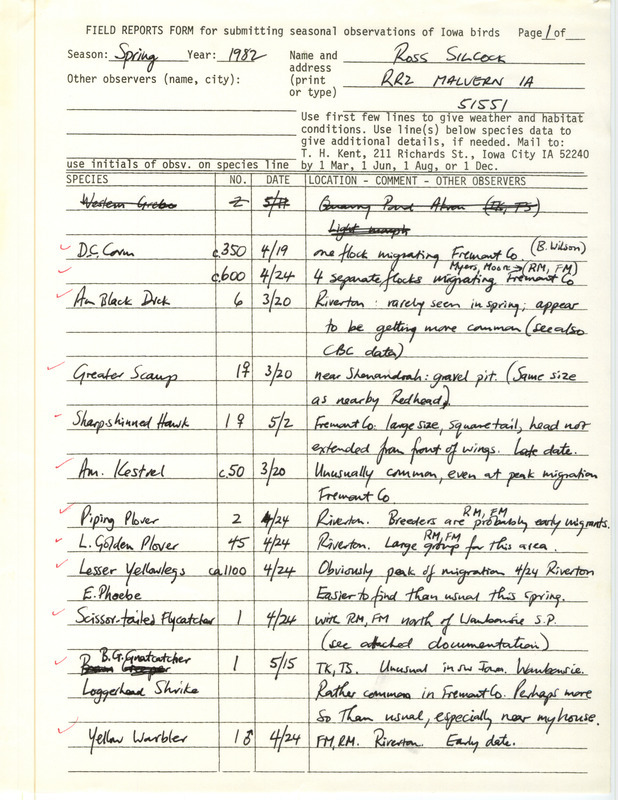 FIELD REPORTS FORM for submitting seasonal observations of Iowa birds Page 1 of
Season: Spring Year: 1982 Name and address (print or type) Ross SILCOCK
Other observers (name, city): RR2 MALVERN IA
51551
Use first few lines to give weather and habitat
conditions. Use line(s) below species data to
give additional details, if needed. Mail to:
T. H. Kent, 211 Richards St., Iowa City IA 52240
use initials of obsv. on species line by 1 Mar, 1 Jun, 1 Aug, or 1 Dec.
SPECIES NO. DATE LOCATION - COMMENT - OTHER OBSERVERS
Western Grebe 2 5/11 Quarry Pond Akron (TK, TS)
Light morph
D.C. Corm c.350 4/19 one flock migrating Fremont Co. (B. Wilson)
Myers, Moore → (RM, FM)
c.600 4/24 4 separate flocks migrating Fremont Co
Am Black Duck 6 3/20 Riverton: rarely seen in spring; appear
to be getting more common (see also
CBC data)
Greater Scaup 1♀ 3/20 near Shenandoah: gravel pit. (Same size
as nearby Redhead).
Sharp-shinned Hawk 1♀ 5/2 Fremont Co. large size, square tail, head not
extended from front of wings. Late date.
Am. Kestrel c.50 3/20 Unusually common, even at peak migration
Fremont Co.
RM, FM
Piping Plover 2 4/24 Riverton. Breeders are probably early migrants.
RM, FM
L. Golden Plover 45 4/24 Riverton. Large group for this area.
Lesser Yellowlegs ca 1100 4/24 Obviously peak of migration 4/24 Riverton
E. Phoebe Easier to find than usual this spring.
Scissor-tailed Flycatcher 1 4/24 with RM, FM north of Waubonsie S.P.
(see attached documentation)
B.G. Gnatcatcher 1 5/15 TK, TS. Unusual in sw Iowa. Waubonsie.
Loggerhead Shrike Rather common in Fremont Co. Perhaps more
so than usual, especially near my house.
Yellow Warbler 1♂ 4/24 FM, RM. Riverton. Early date.